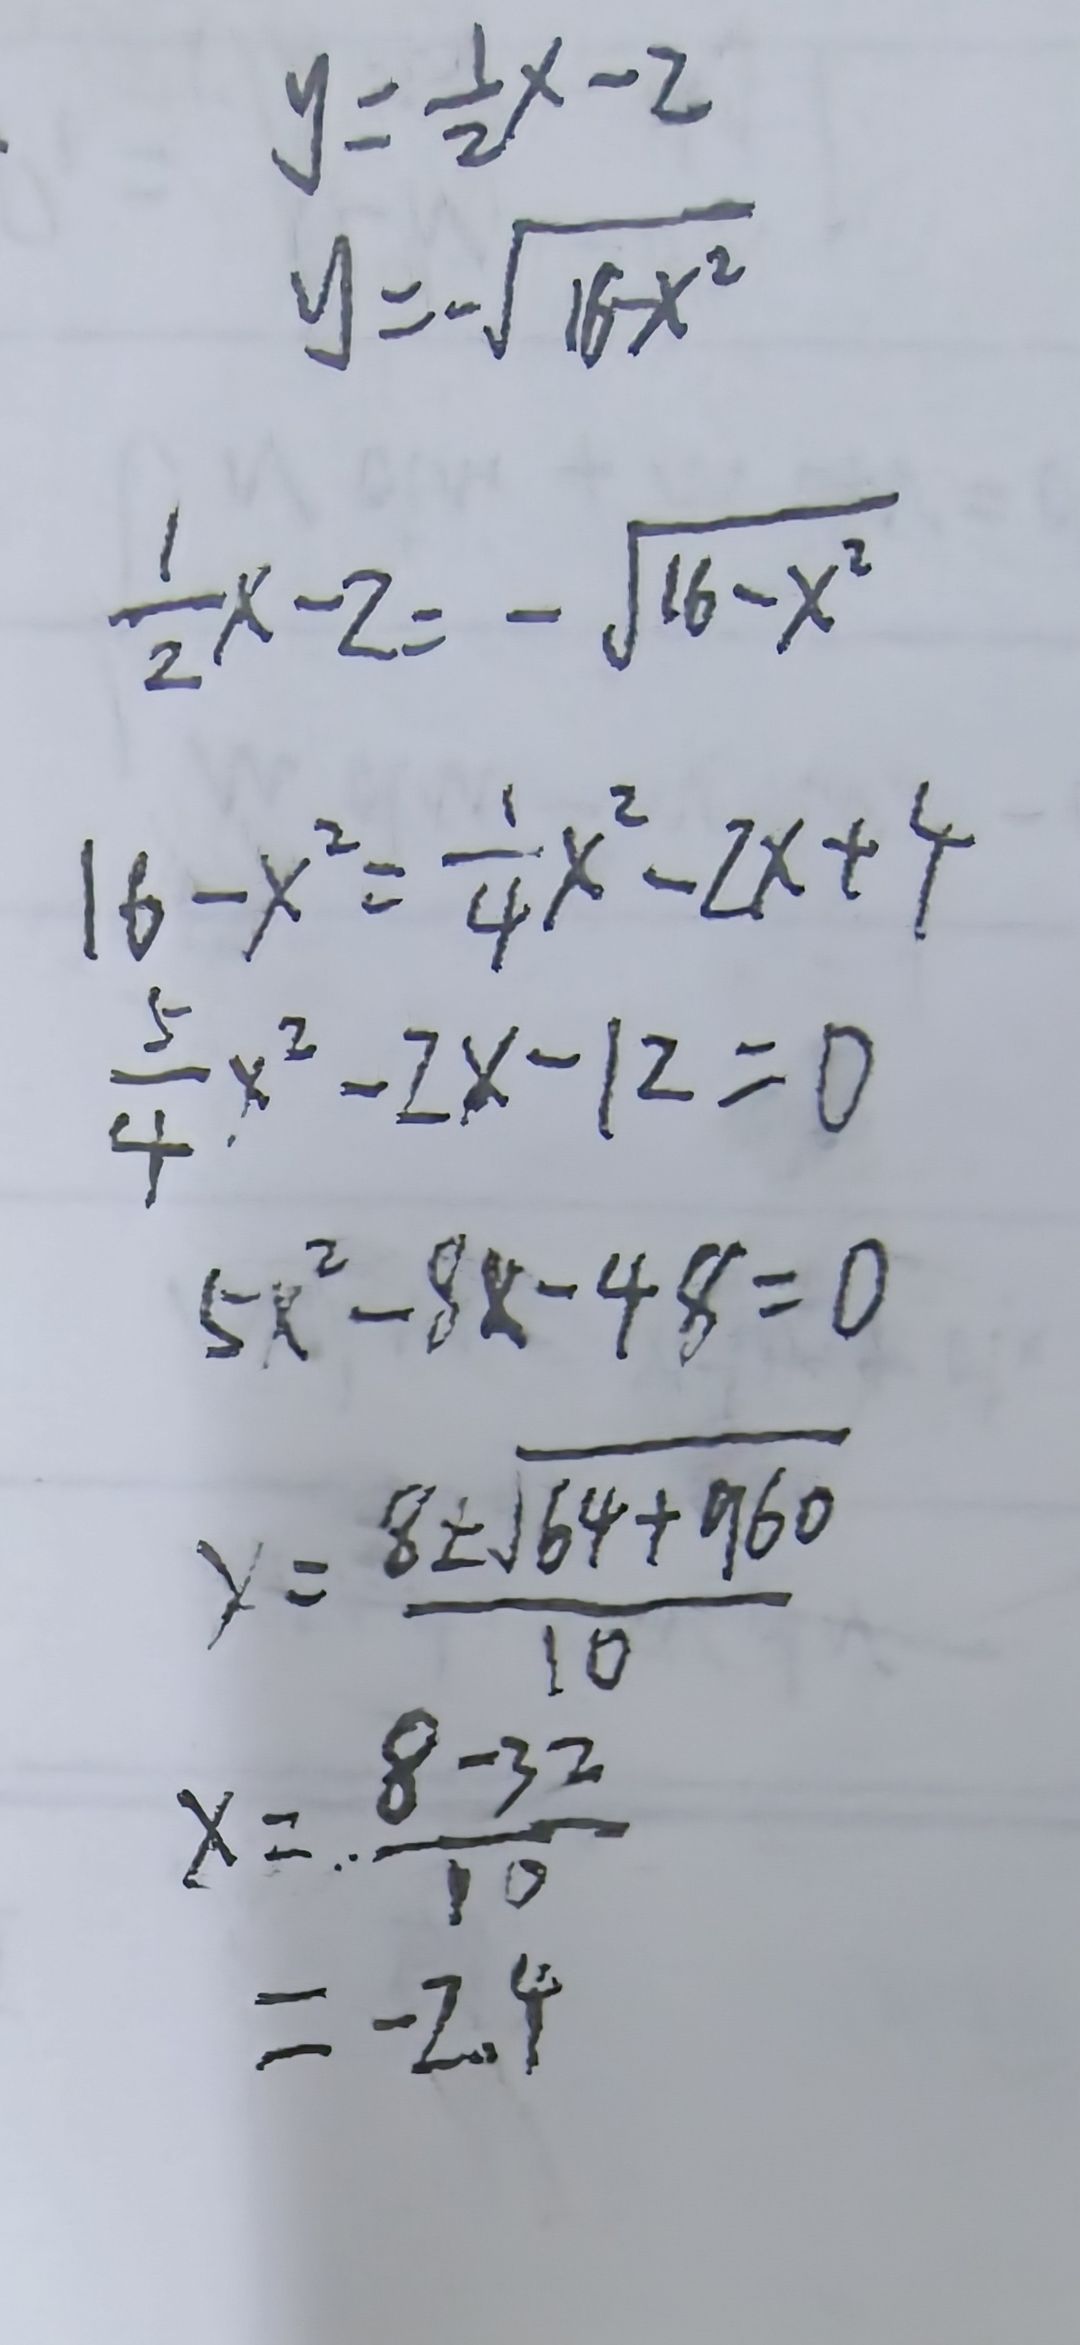 y = 1/2 x - 2
y = -√(16-x²)
1/2 x - 2 = - √(16 - x²)
16 - x² = 1/4 x² - 2x + 4
5/4 x² - 2x - 12 = 0
5x² - 8x - 48 = 0
x = (8 ± √(64 + 960))/10
x = (8 - 32)/10
= -2.4